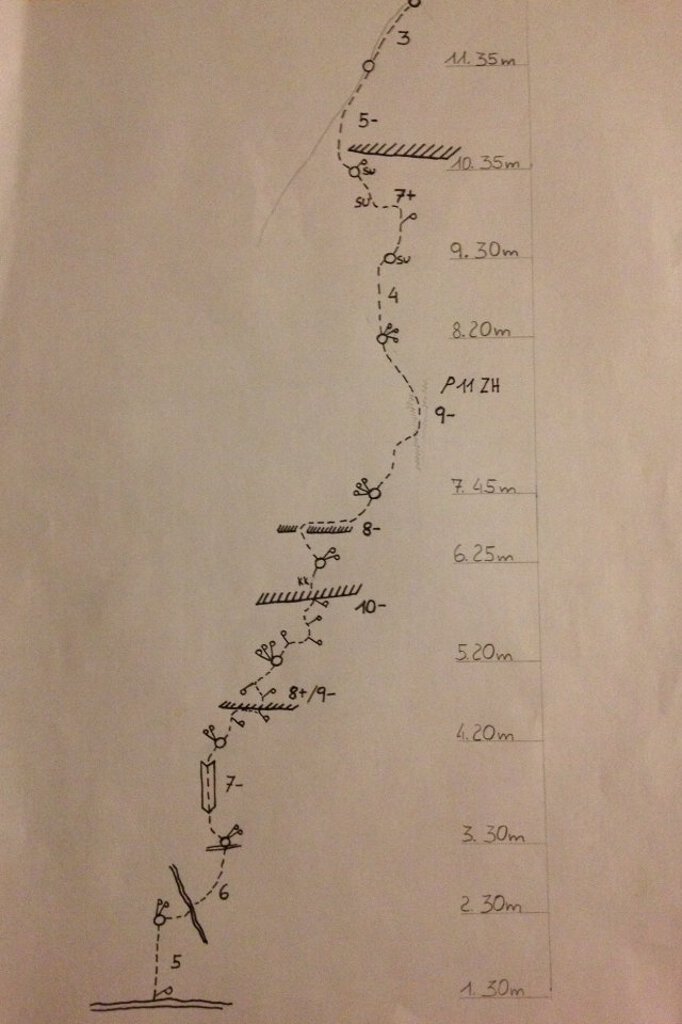 3
11. 35m
5-
10. 35m
su
su
7+
9. 30m
su
4
8. 20m
P 11 ZH
9-
7. 45m
8-
6. 25m
KK
10-
5. 20m
8+/9-
4. 20m
7-
3. 30m
6
2. 30m
5
1. 30m